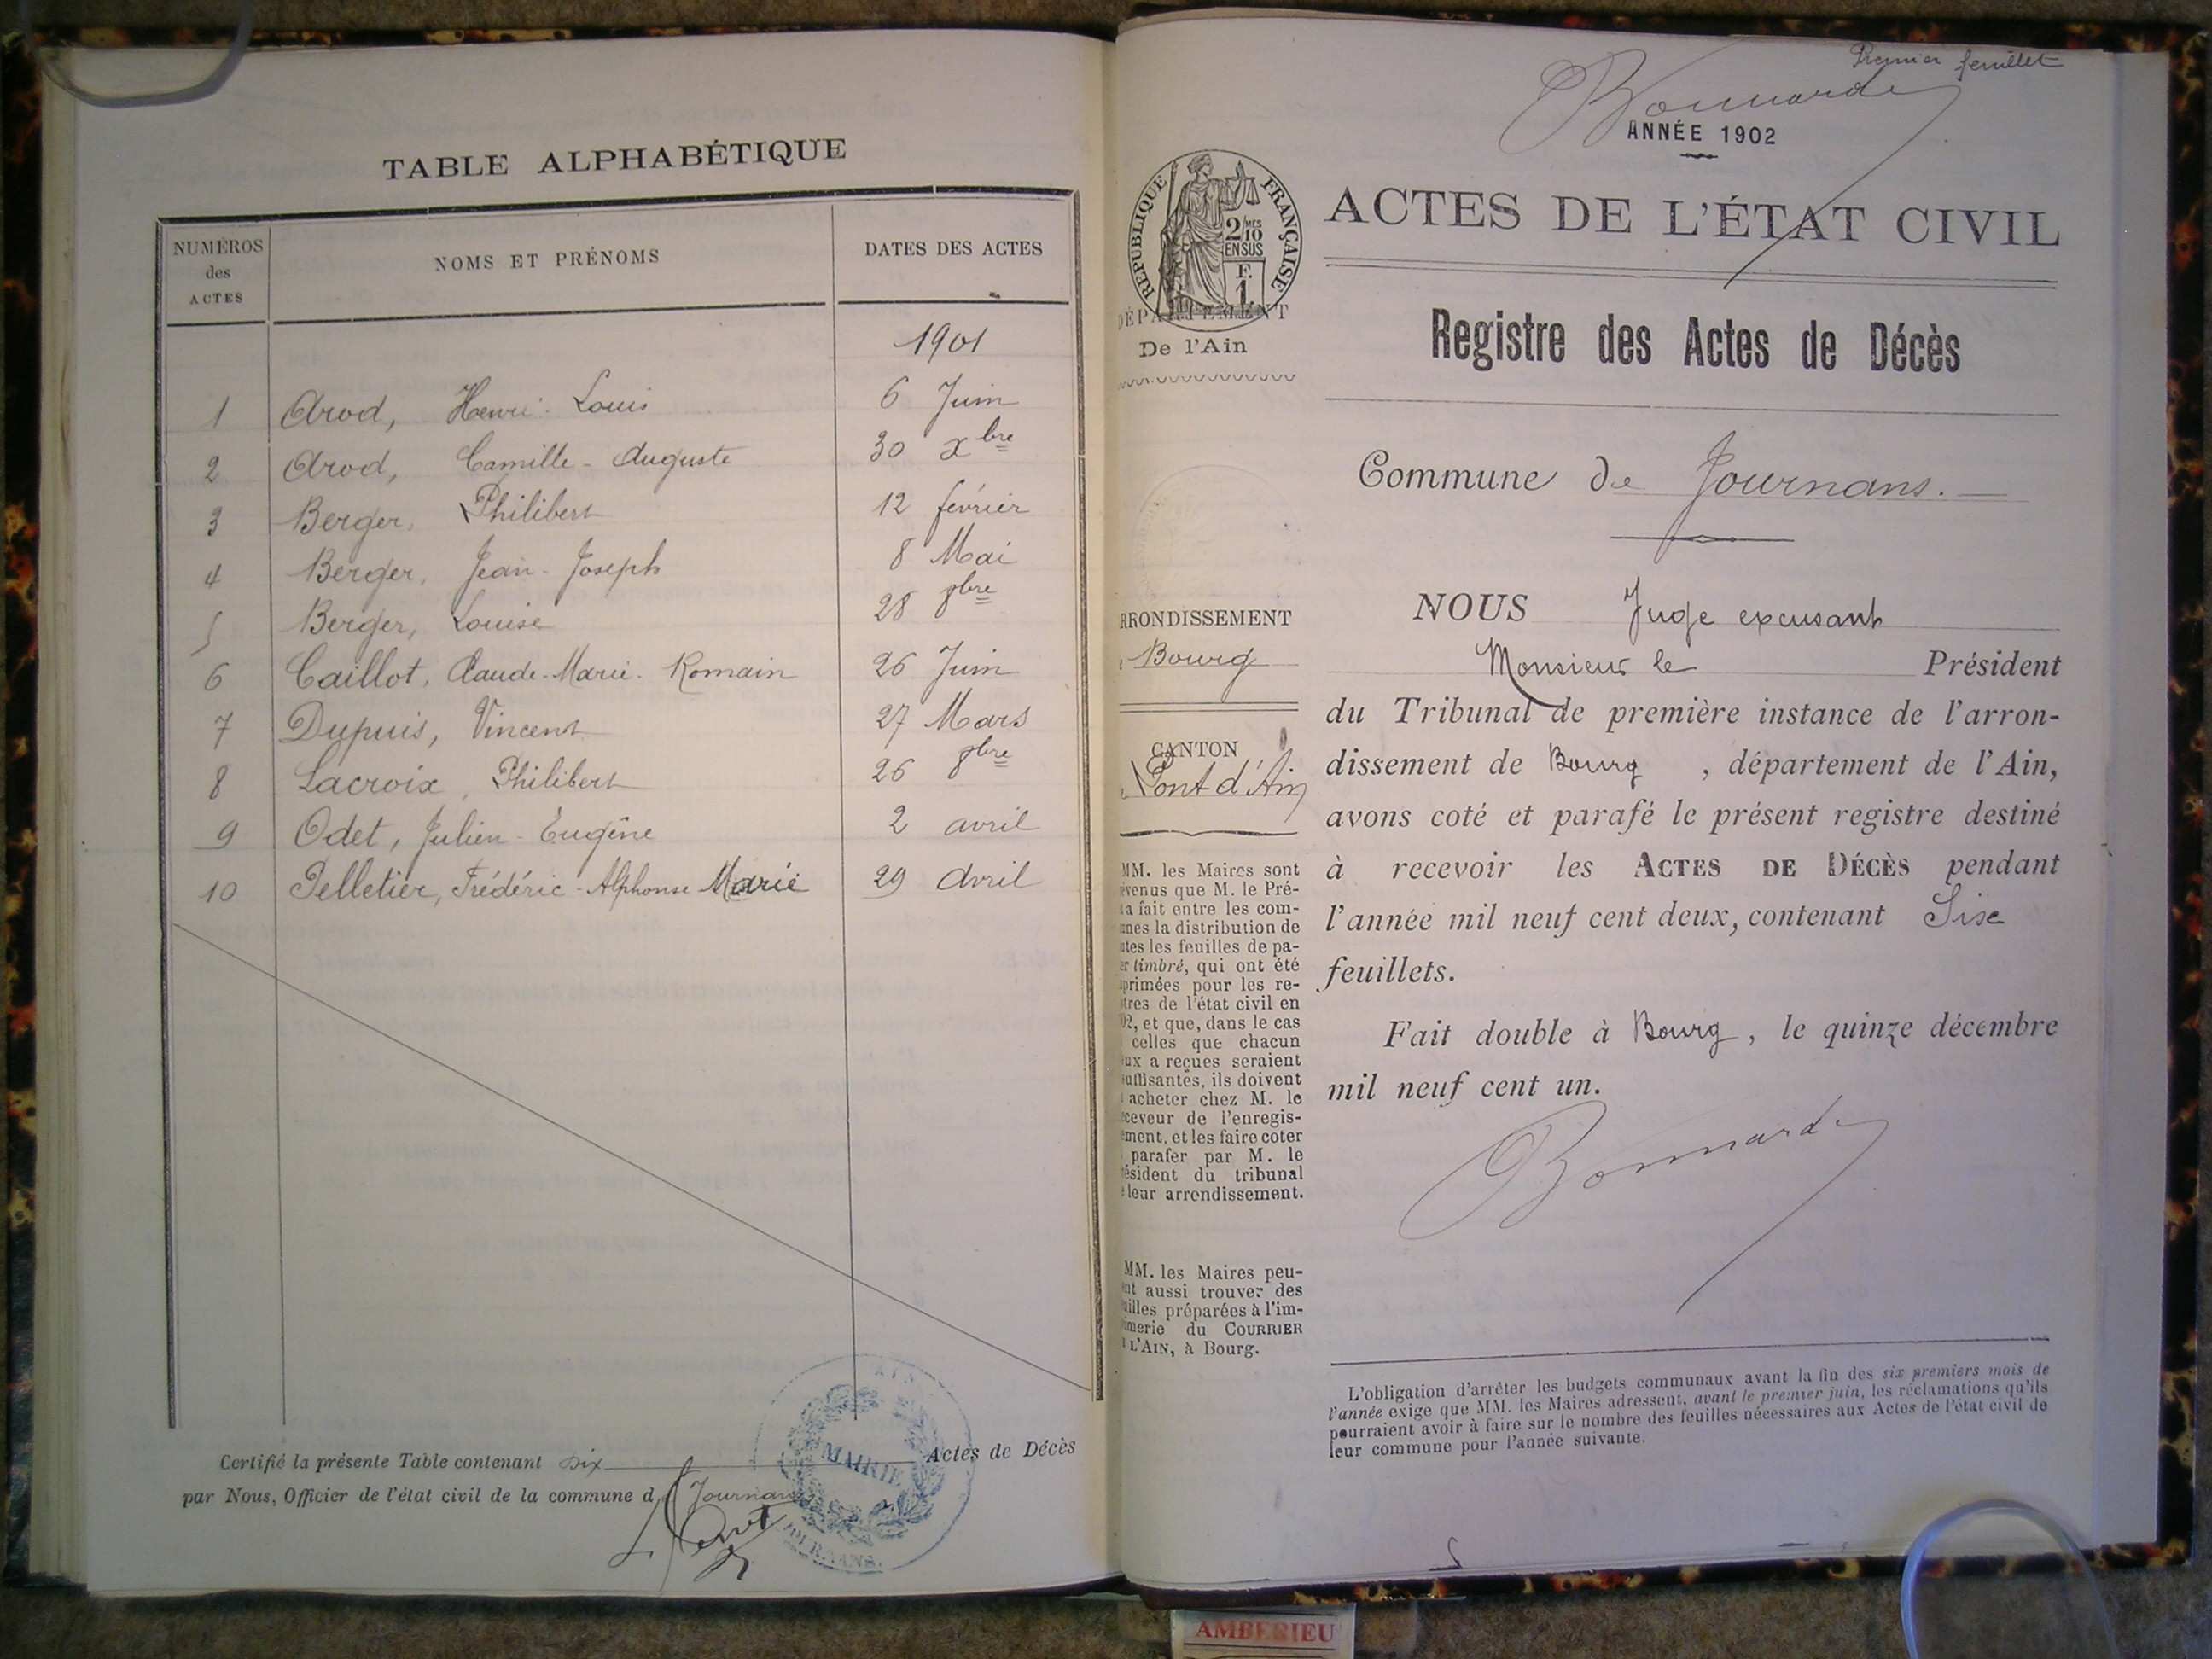 TABLE ALPHABÉTIQUE
NUMÉROS
des
ACTES
NOMS ET PRÉNOMS
DATES DES ACTES
1901
1 Arod, Henri-Louis 6 Juin
2 Arod, Camille-Auguste 30 xbre
3 Berger, Philibert 12 février
4 Berger, Jean-Joseph 8 Mai
5 Berger, Louise 28 8bre
6 Caillot, Claude-Marie-Romain 26 Juin
7 Dupuis, Vincent 27 Mars
8 Lacroix, Philibert 26 8bre
9 Odet, Julien-Eugène 2 avril
10 Pelletier, Frédéric-Alphonse Marie 29 Avril
Certifié la présente Table contenant dix Actes de Décès
par Nous, Officier de l'état civil de la commune d Journans
MAIRIE
AIN
JOURNANS
Premier feuillet
Bonnarde
ANNÉE 1902
ACTES DE L'ÉTAT CIVIL
RÉPUBLIQUE FRANÇAISE
2/10MES
EN SUS
F.
1
DÉPARTEMENT
De l'Ain
Registre des Actes de Décès
Commune de Journans.
RRONDISSEMENT
Bourg
CANTON
Pont d'Ain
NOUS Juge excusant
Monsieur le Président
du Tribunal de première instance de l'arron-
dissement de Bourg, département de l'Ain,
avons coté et parafé le présent registre destiné
à recevoir les ACTES DE DÉCÈS pendant
l'année mil neuf cent deux, contenant Six
feuillets.
Fait double à Bourg, le quinze décembre
mil neuf cent un.
Bonnarde
MM. les Maires sont
évenus que M. le Pré-
t a fait entre les com-
unes la distribution de
utes les feuilles de pa-
er timbré, qui ont été
primées pour les re-
stres de l'état civil en
02, et que, dans le cas
celles que chacun
eux a reçues seraient
suffisantes, ils doivent
acheter chez M. le
eceveur de l'enregis-
ement, et les faire coter
parafer par M. le
résident du tribunal
e leur arrondissement.
MM. les Maires peu-
ent aussi trouver des
uilles préparées à l'im-
imerie du COURRIER
L'AIN, à Bourg.
L'obligation d'arrêter les budgets communaux avant la fin des six premiers mois de
l'année exige que MM. les Maires adressent, avant le premier juin, les réclamations qu'ils
pourraient avoir à faire sur le nombre des feuilles nécessaires aux Actes de l'état civil de
leur commune pour l'année suivante.
AMBERIEU